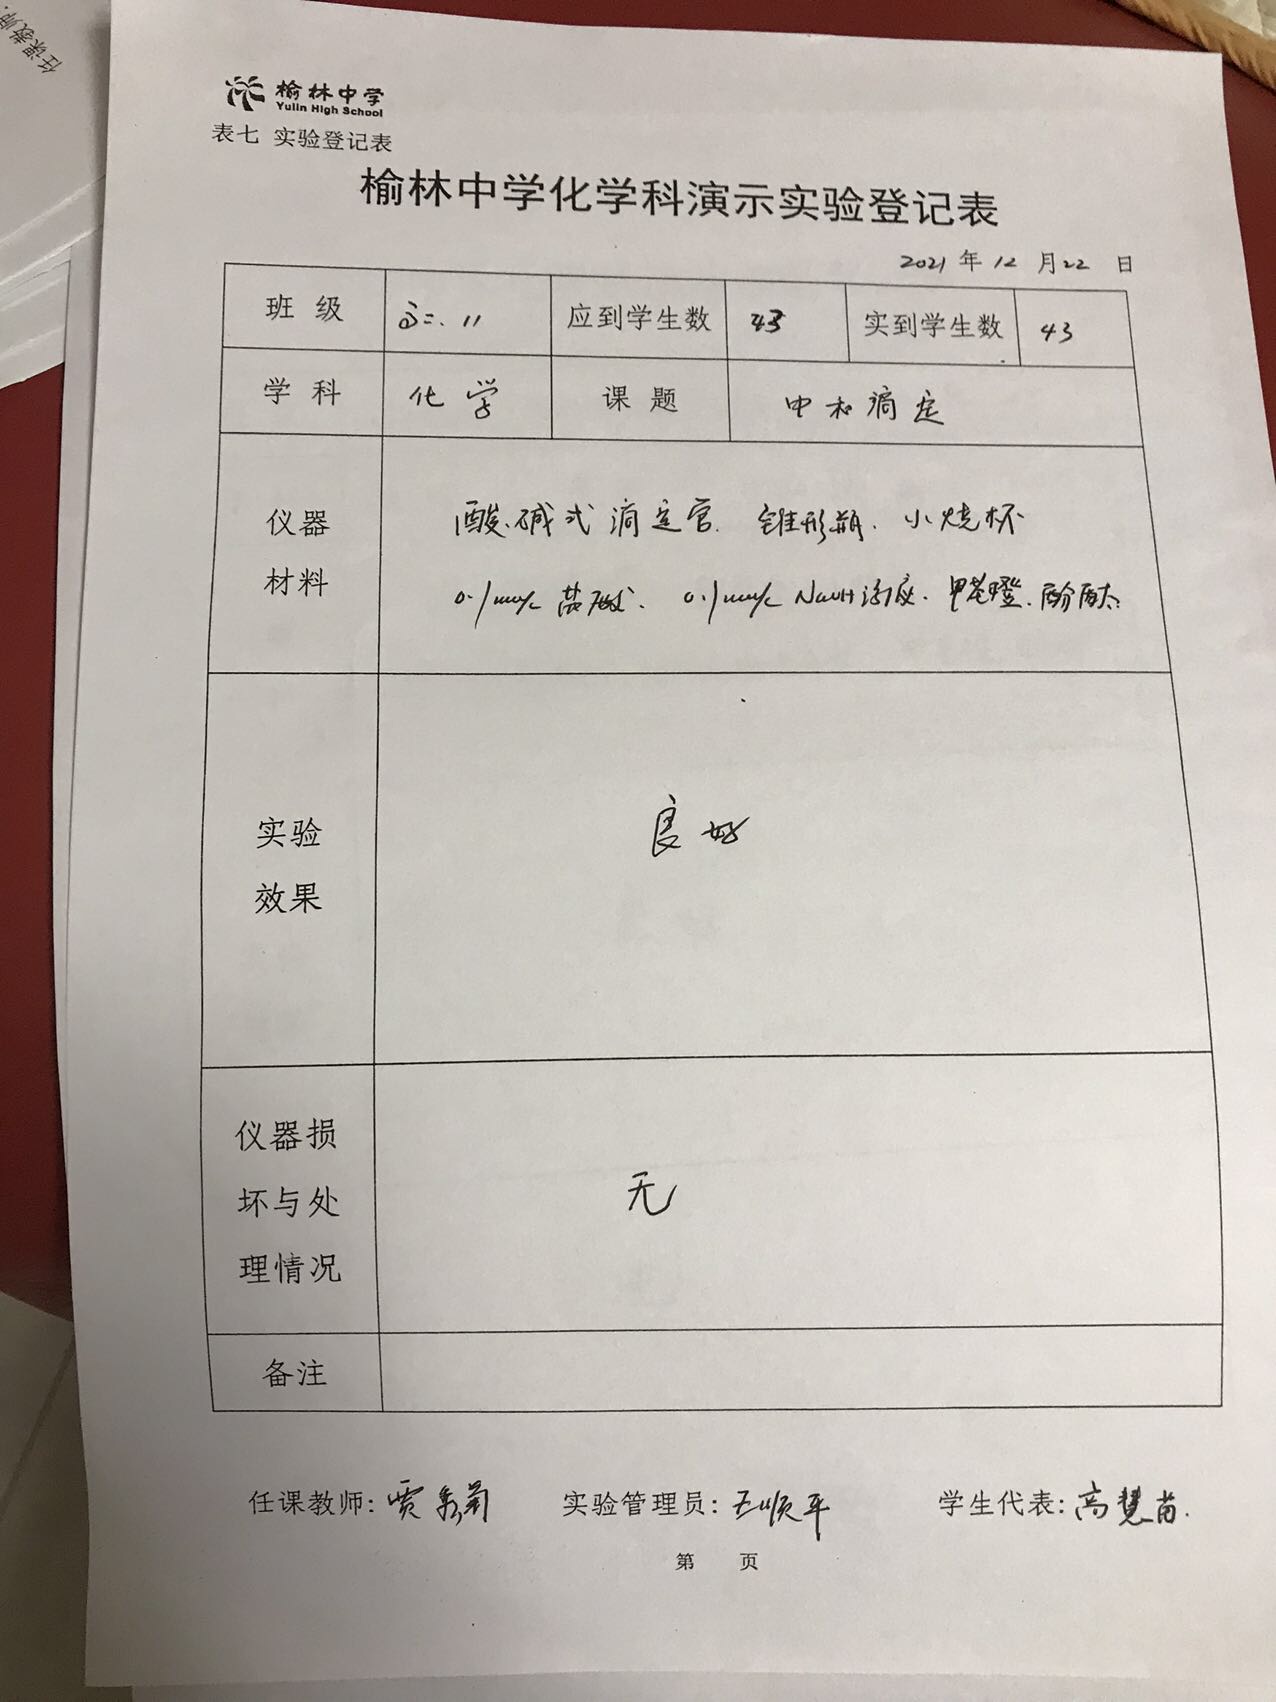 任课教师:
榆林中学
Yulin High School
表七 实验登记表
榆林中学化学科演示实验登记表
2021 年 12 月 22 日
班 级 高二.11 应到学生数 43 实到学生数 43
学 科 化学 课 题 中和滴定
仪器
材料
酸.碱式滴定管. 锥形瓶. 小烧杯
0.1mol/L 盐酸. 0.1mol/L NaOH溶液. 甲基橙. 酚酞.
实验
效果
良好
仪器损
坏与处
理情况
无
备注
任课教师: 贾秀菊 实验管理员: 王顺平 学生代表: 高慧苗.
第 页